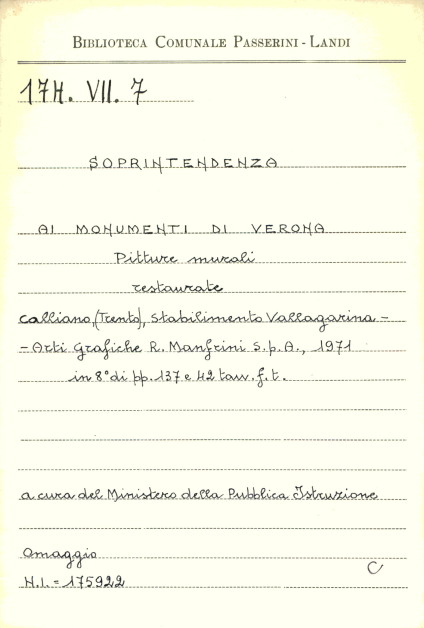 BIBLIOTECA COMUNALE PASSERINI - LANDI
17H. VII. 7
SOPRINTENDENZA
AI MONUMENTI DI VERONA
Pitture murali
restaurate
Calliano, (Trento), Stabilimento Vallagarina -
- Arti Grafiche R. Manfrini S.p.A., 1971
in 8° di pp. 137 e 42 tav. f. t.
a cura del Ministero della Pubblica Istruzione
Omaggio
C
N.I. = 175922